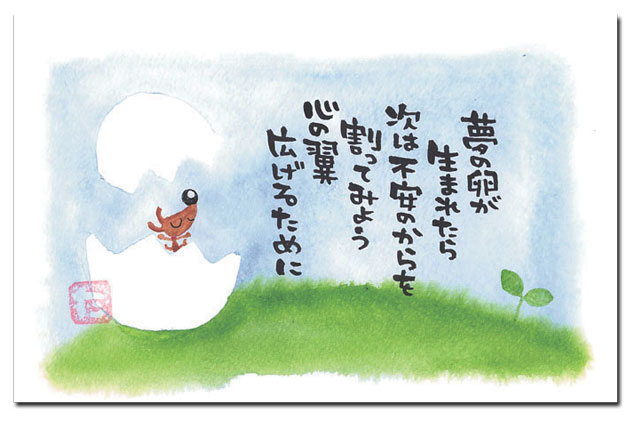 夢の卵が
生まれたら
次は不安のからを
割ってみよう
心の翼
広げるために